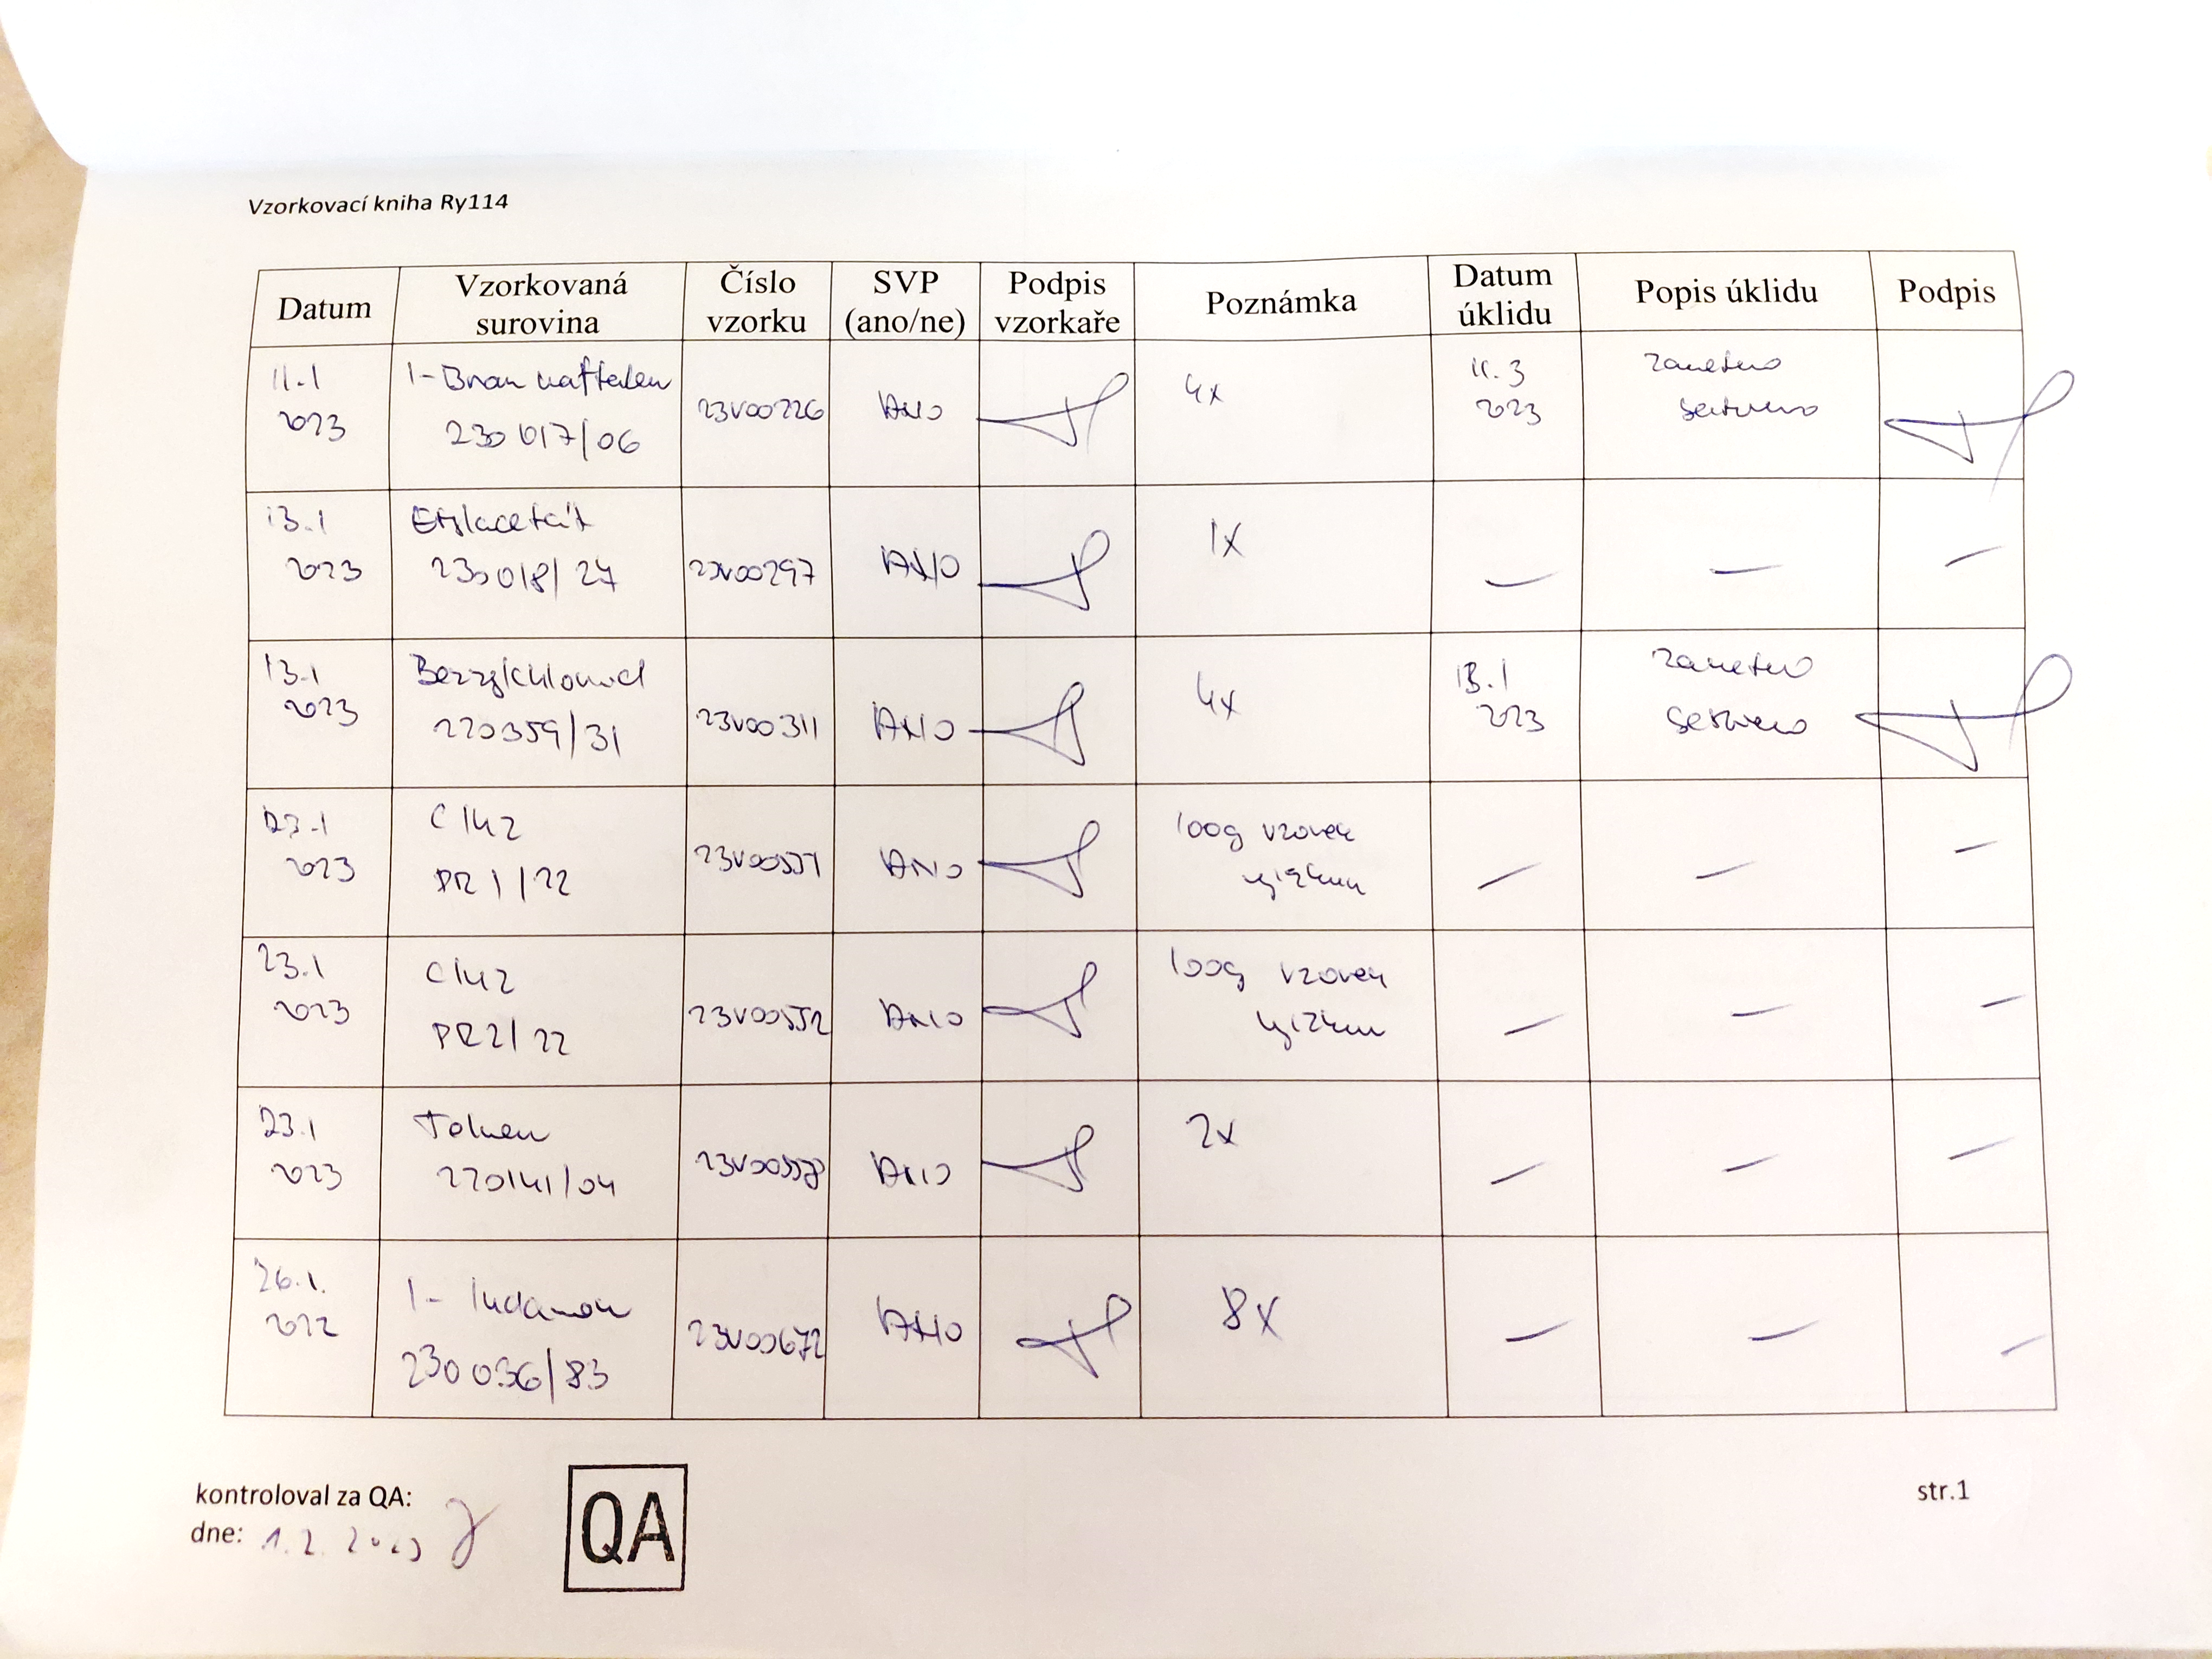 Vzorkovací kniha Ry114
Datum
Vzorkovaná
surovina
Číslo
vzorku
SVP
(ano/ne)
Podpis
vzorkaře
Poznámka
Datum
úklidu
Popis úklidu
Podpis
11.1
2023
1-Brom naftalen
230017/06
23V00226
ANO
4x
11.3
2023
zameteno
setřeno
13.1
2023
Etylacetát
230018/27
23V00297
ANO
1x
—
—
—
13.1
2023
Benzylchlorid
220359/31
23V00311
ANO
4x
13.1
2023
zameteno
setřeno
23.1
2023
C142
PR1/22
ANO
100g vzorek
výzkum
—
—
—
23.1
2023
C142
PR2/22
23V00552
ANO
100g vzorek
výzkum
—
—
—
23.1
2023
Toluen
220141/04
ANO
2x
—
—
—
26.1.
2022
1- Indanon
230036/83
23V00672
ANO
8x
—
—
—
kontroloval za QA:
dne: 1.2.2023
QA
str.1